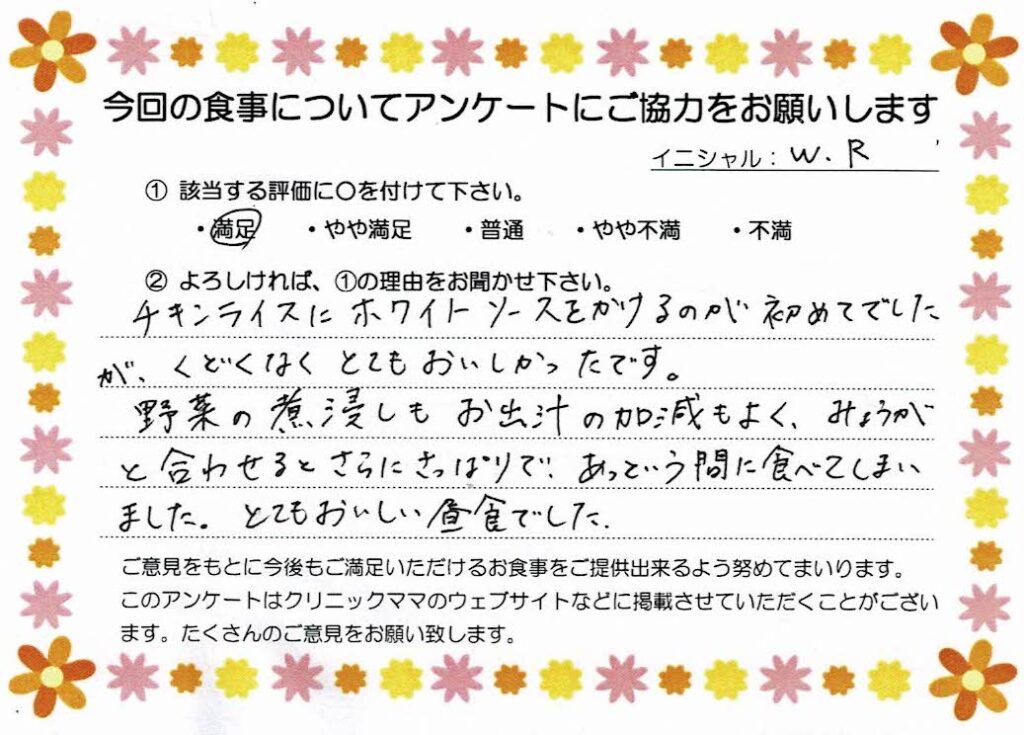 今回の食事についてアンケートにご協力をお願いします
イニシャル：W.R
① 該当する評価に〇を付けて下さい。
・満足 ・やや満足 ・普通 ・やや不満 ・不満
② よろしければ、①の理由をお聞かせ下さい。
チキンライスにホワイトソースをかけるのが初めてでした
が、くどくなくとてもおいしかったです。
野菜の煮浸しもお出汁の加減もよく、みょうが
と合わせるとさらにさっぱりで、あっという間に食べてしまい
ました。とてもおいしい昼食でした.
ご意見をもとに今後もご満足いただけるお食事をご提供出来るよう努めてまいります。
このアンケートはクリニックママのウェブサイトなどに掲載させていただくことがござい
ます。たくさんのご意見をお願い致します。